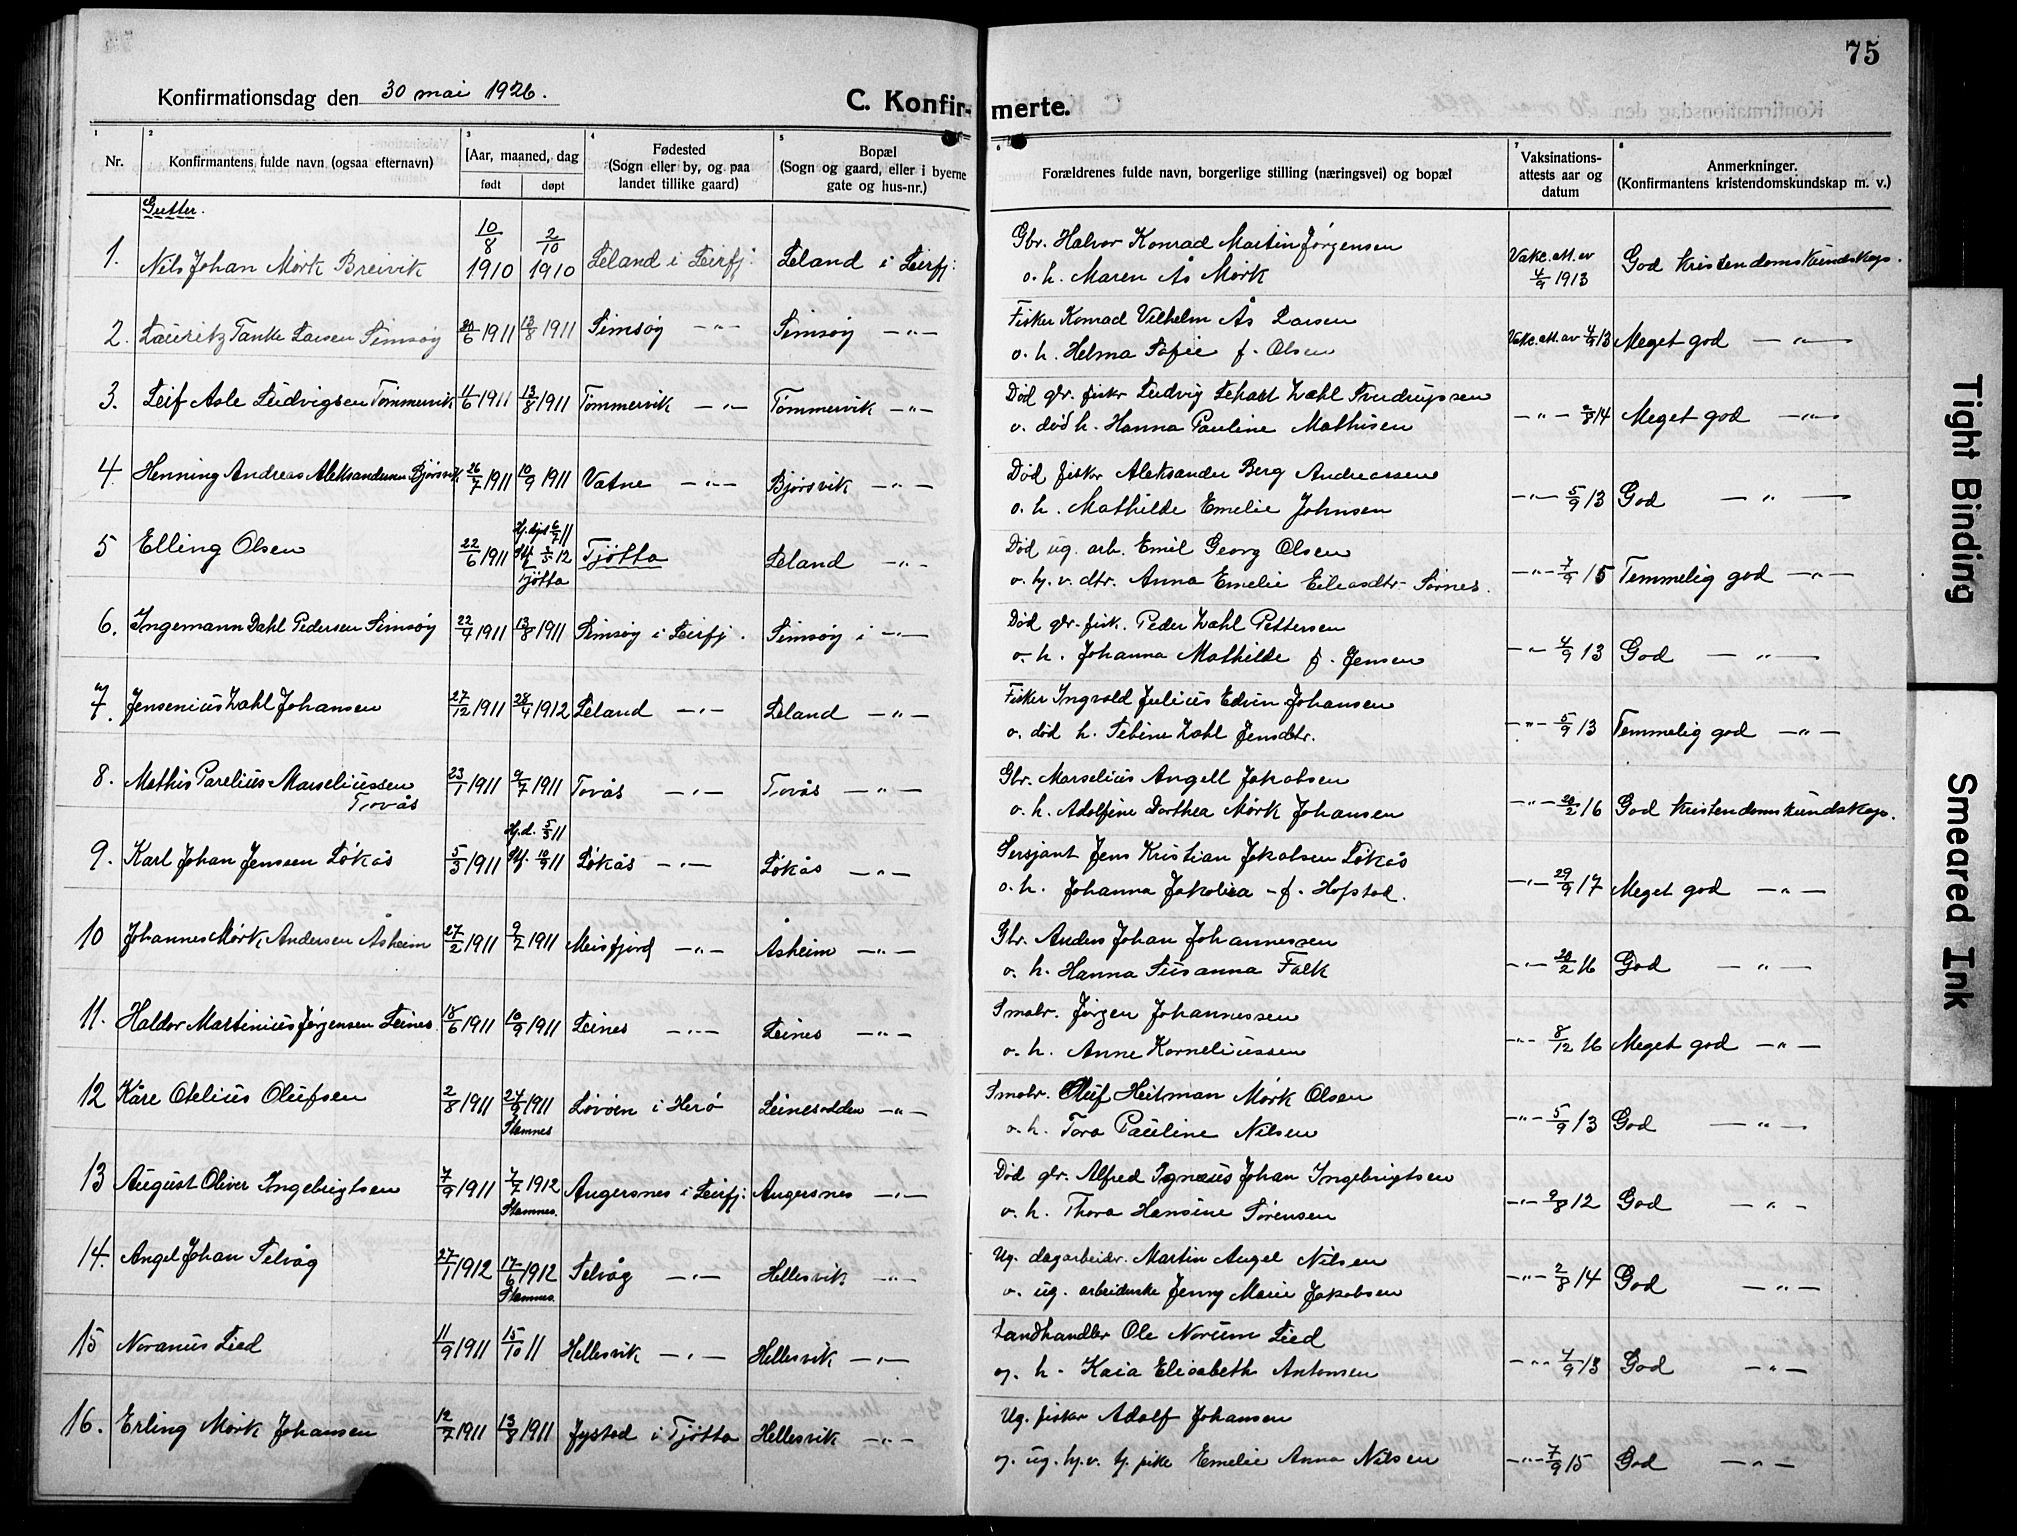 75
Konfirmationsdag den 30 mai 1926.
C. Konfir- merte.
1 2 3 4 5 6 7 8
Nr. Konfirmantens fulde navn (ogsaa efternavn) Aar, maaned, dag født døpt Fødested (Sogn eller by, og paa landet tillike gaard) Bopæl (Sogn og gaard, eller i byerne gate og hus-nr.) Forældrenes fulde navn, borgerlige stilling (næringsvei) og bopæl Vaksinations-attests aar og datum Anmerkninger. (Konfirmantens kristendomskundskap m. v.)
Gutter.
1. Nils Johan Mørk Breivik 10/8 1910 2/10 1910 Leland i Leirfj. Leland i Leirfj. Gbr. Halvor Konrad Martin Jørgensen Vakc. att. av 4/9 1913 God kristendomskundskap.
o. h. Maren Ås Mørk
2. Lauritz Tanke Larsen Simsøy 20/6 1911 13/8 1911 Simsøy —"— Simsøy —"— Fisker Konrad Vilhelm Ås Larsen Vakc. att. av 4/9 13 Meget god —"—
o. h. Helma Sofie f. Olsen
3. Leif Asle Ludvigsen Tømmervik 11/6 1911 13/8 1911 Tømmervik —"— Tømmervik —"— Død gbr. fisker Ludvig Zahl —"— 2/8 14 Meget god —"—
o. død h. Hanna Pauline Mathisen
4. Henning Andreas Aleksandersen Bjørsvik 26/7 1911 10/9 1911 Vatne —"— Bjørsvik —"— Død fisker Aleksander Berg Andreassen —"— 5/9 13 God —"—
o. h. Mathilde Emelie Johnsen
5 Elling Olsen 22/6 1911 Hj. døpt 6/7 11 Stf. 2/5 12 Tjøtta Tjøtta Leland —"— Død ug. arb. Emil Georg Olsen —"— 7/9 15 Temmelig god —"—
o. hj. v. dtr. Anna Emelie Eileasdtr. Sørnes.
6. Ingemann Dahl Pedersen Simsøy 22/4 1911 13/8 1911 Simsøy i Leirfj. Simsøy i —"— Død gbr. fisk. Peder Zahl Pettersen —"— 4/9 13 God —"—
o. h. Johanna Mathilde f. Jensen
7. Jensenius Zahl Johansen 27/12 1911 28/4 1912 Leland —"— Leland —"— Fisker Ingvald Julius Edvin Johansen —"— 5/9 13 Temmelig god —"—
o. død h. Sebine Zahl Jensdtr.
8. Mathis Parelius Marseliussen Tovås 23/1 1911 9/7 1911 Tovås —"— Tovås —"— Gbr. Marselius Angell Jakobsen —"— 20/2 16 God kristendomskundskap.
o. h. Adolfine Dorthea Mørk Johansen
9. Karl Johan Jensen Løkås 5/3 1911 Hj. d. 5/3 11 Stf. 10/9 11 Løkås —"— Løkås —"— Sersjant Jens Kristian Jakobsen Løkås —"— 29/9 17 Meget god —"—
o. h. Johanna Jakobea f. Hofstad.
10 Johannes Mørk Andersen Åsheim 27/2 1911 9/7 1911 Meisfjord —"— Åsheim —"— Gbr. Anders Johan Johannessen —"— 20/2 16 God —"—
o. h. Hanna Susanna Falk
11. Haldor Martinius Jørgensen Leines 18/6 1911 10/9 1911 Leines —"— Leines —"— Smabr. Jørgen Johannessen —"— 8/12 16 Meget god —"—
o. h. Anne Korneliussen
12 Kåre Otelius Olufsen 2/8 1911 24/9 1911 Stamnes Løvøen i Herø Leinesodden —"— Smabr. Oluf Heitman Mørk Olsen —"— 5/9 13 God —"—
o. h. Tora Pauline Nilsen
13 August Oliver Ingebrigtsen 7/9 1911 7/7 1912 Stamnes. Angersnes i Leirfj. Angersnes —"— Død gbr. Alfred Ignæus Johan Ingebrigtsen —"— 2/8 12 God —"—
o. h. Thora Hansine Sørensen
14. Angel Johan Selvåg 27/1 1912 17/6 1912 Stamnes. Selvåg —"— Hellesvik —"— Ug. dagarbeider. Martin Angel Nilsen —"— 2/8 14 God —"—
o. ug. arbeiderske Jenny Marie Jakobsen
15 Noranus Lied 11/9 1911 15/10 11 Hellesvik —"— Hellesvik —"— Landhandler Ole Norum Lied —"— 4/9 13 God —"—
og. h. Kaia Elisabeth Antonsen
16. Erling Mørk Johansen 12/7 1911 13/8 1911 Jystad i Tjøtta Hellesvik —"— Ug. fisker Adolf Johansen —"— 7/9 15 God —"—
og. ug. hj. v. tj. pike Emelie Anna Nilsen
Tight Binding
Smeared Ink